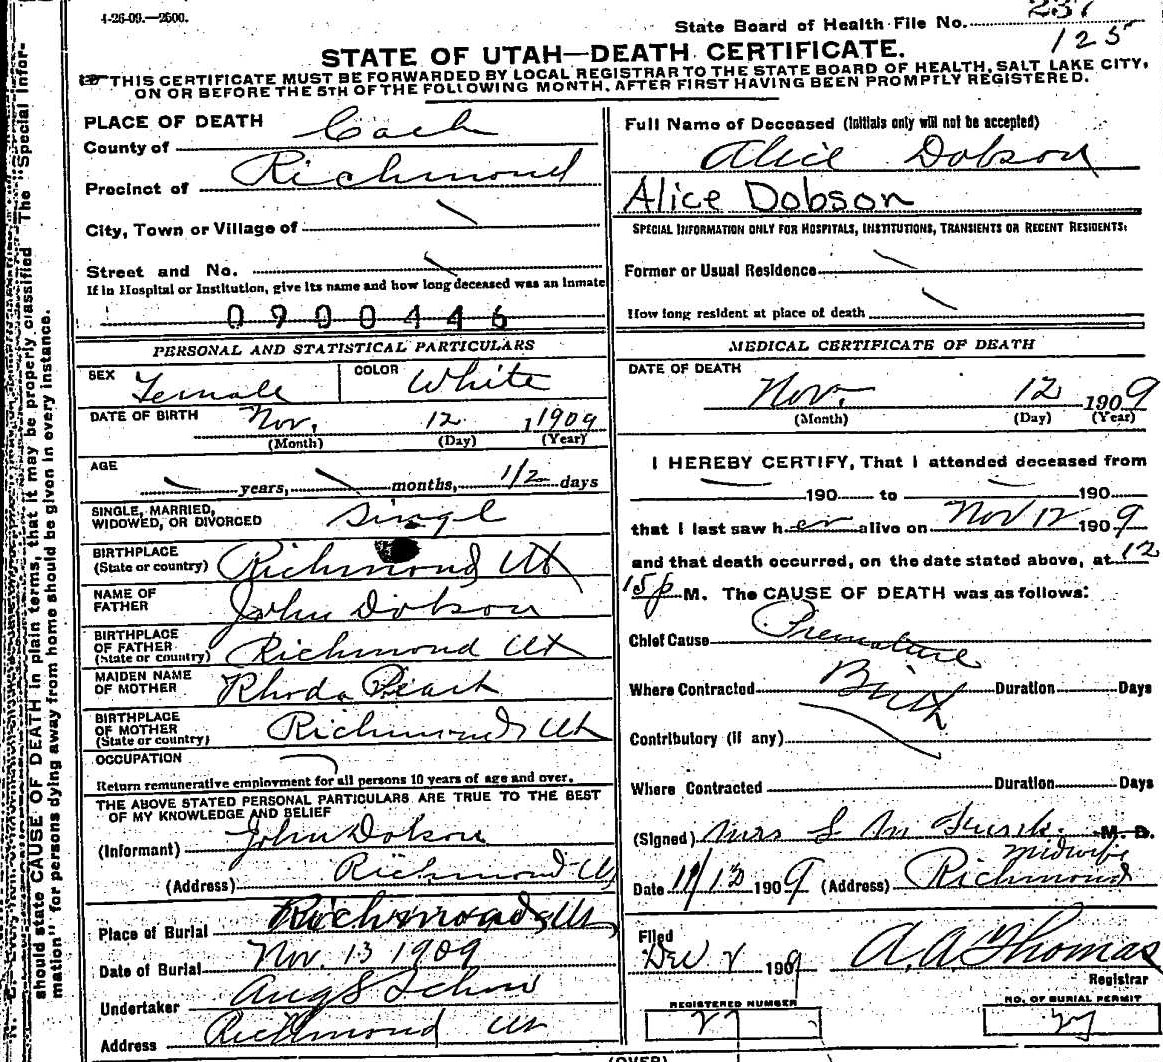 4-26-09.—2500.
State Board of Health File No. 237
125
STATE OF UTAH—DEATH CERTIFICATE.
THIS CERTIFICATE MUST BE FORWARDED BY LOCAL REGISTRAR TO THE STATE BOARD OF HEALTH, SALT LAKE CITY,
ON OR BEFORE THE 5TH OF THE FOLLOWING MONTH, AFTER FIRST HAVING BEEN PROMPTLY REGISTERED.
PLACE OF DEATH
County of Cach
Precinct of Richmond
City, Town or Village of
Street and No.
If in Hospital or Institution, give its name and how long deceased was an Inmate
0900446
PERSONAL AND STATISTICAL PARTICULARS
SEX Female COLOR White
DATE OF BIRTH Nov. 12 1909
(Month) (Day) (Year)
AGE
years, months, 1/2 days
SINGLE, MARRIED,
WIDOWED, OR DIVORCED Singl
BIRTHPLACE
(State or country) Richmond Ut
NAME OF
FATHER John Dobson
BIRTHPLACE
OF FATHER
(State or country) Richmond Ut
MAIDEN NAME
OF MOTHER Rhoda
BIRTHPLACE
OF MOTHER
(State or country) Richmond Ut
OCCUPATION
Return remunerative employment for all persons 10 years of age and over.
THE ABOVE STATED PERSONAL PARTICULARS ARE TRUE TO THE BEST
OF MY KNOWLEDGE AND BELIEF
(Informant) John Dobson
(Address) Richmond Ut
Place of Burial Richmond Ut
Date of Burial Nov. 13 1909
Undertaker Aug S
Address Richmond Ut
Full Name of Deceased (Initials only will not be accepted)
Alice Dobson
Alice Dobson
SPECIAL INFORMATION ONLY FOR HOSPITALS, INSTITUTIONS, TRANSIENTS OR RECENT RESIDENTS:
Former or Usual Residence
How long resident at place of death
MEDICAL CERTIFICATE OF DEATH
DATE OF DEATH
Nov. 12 1909
(Month) (Day) (Year)
I HEREBY CERTIFY, That I attended deceased from
190 to 190
that I last saw her alive on Nov 12 1909
and that death occurred, on the date stated above, at 12
15 p M. The CAUSE OF DEATH was as follows:
Chief Cause Premature
Where Contracted Birth Duration Days
Contributory (if any)
Where Contracted Duration Days
(Signed) Mrs L M M. D.
midwife
Date 11/13 1909 (Address) Richmond
Filed
Dec 1909 A. A. Thomas
Registrar
REGISTERED NUMBER
27
NO. OF BURIAL PERMIT
27
(OVER)
should state CAUSE OF DEATH in plain terms, that it may be properly classified The "Special Infor-
mation" for persons dying away from home should be given in every instance.